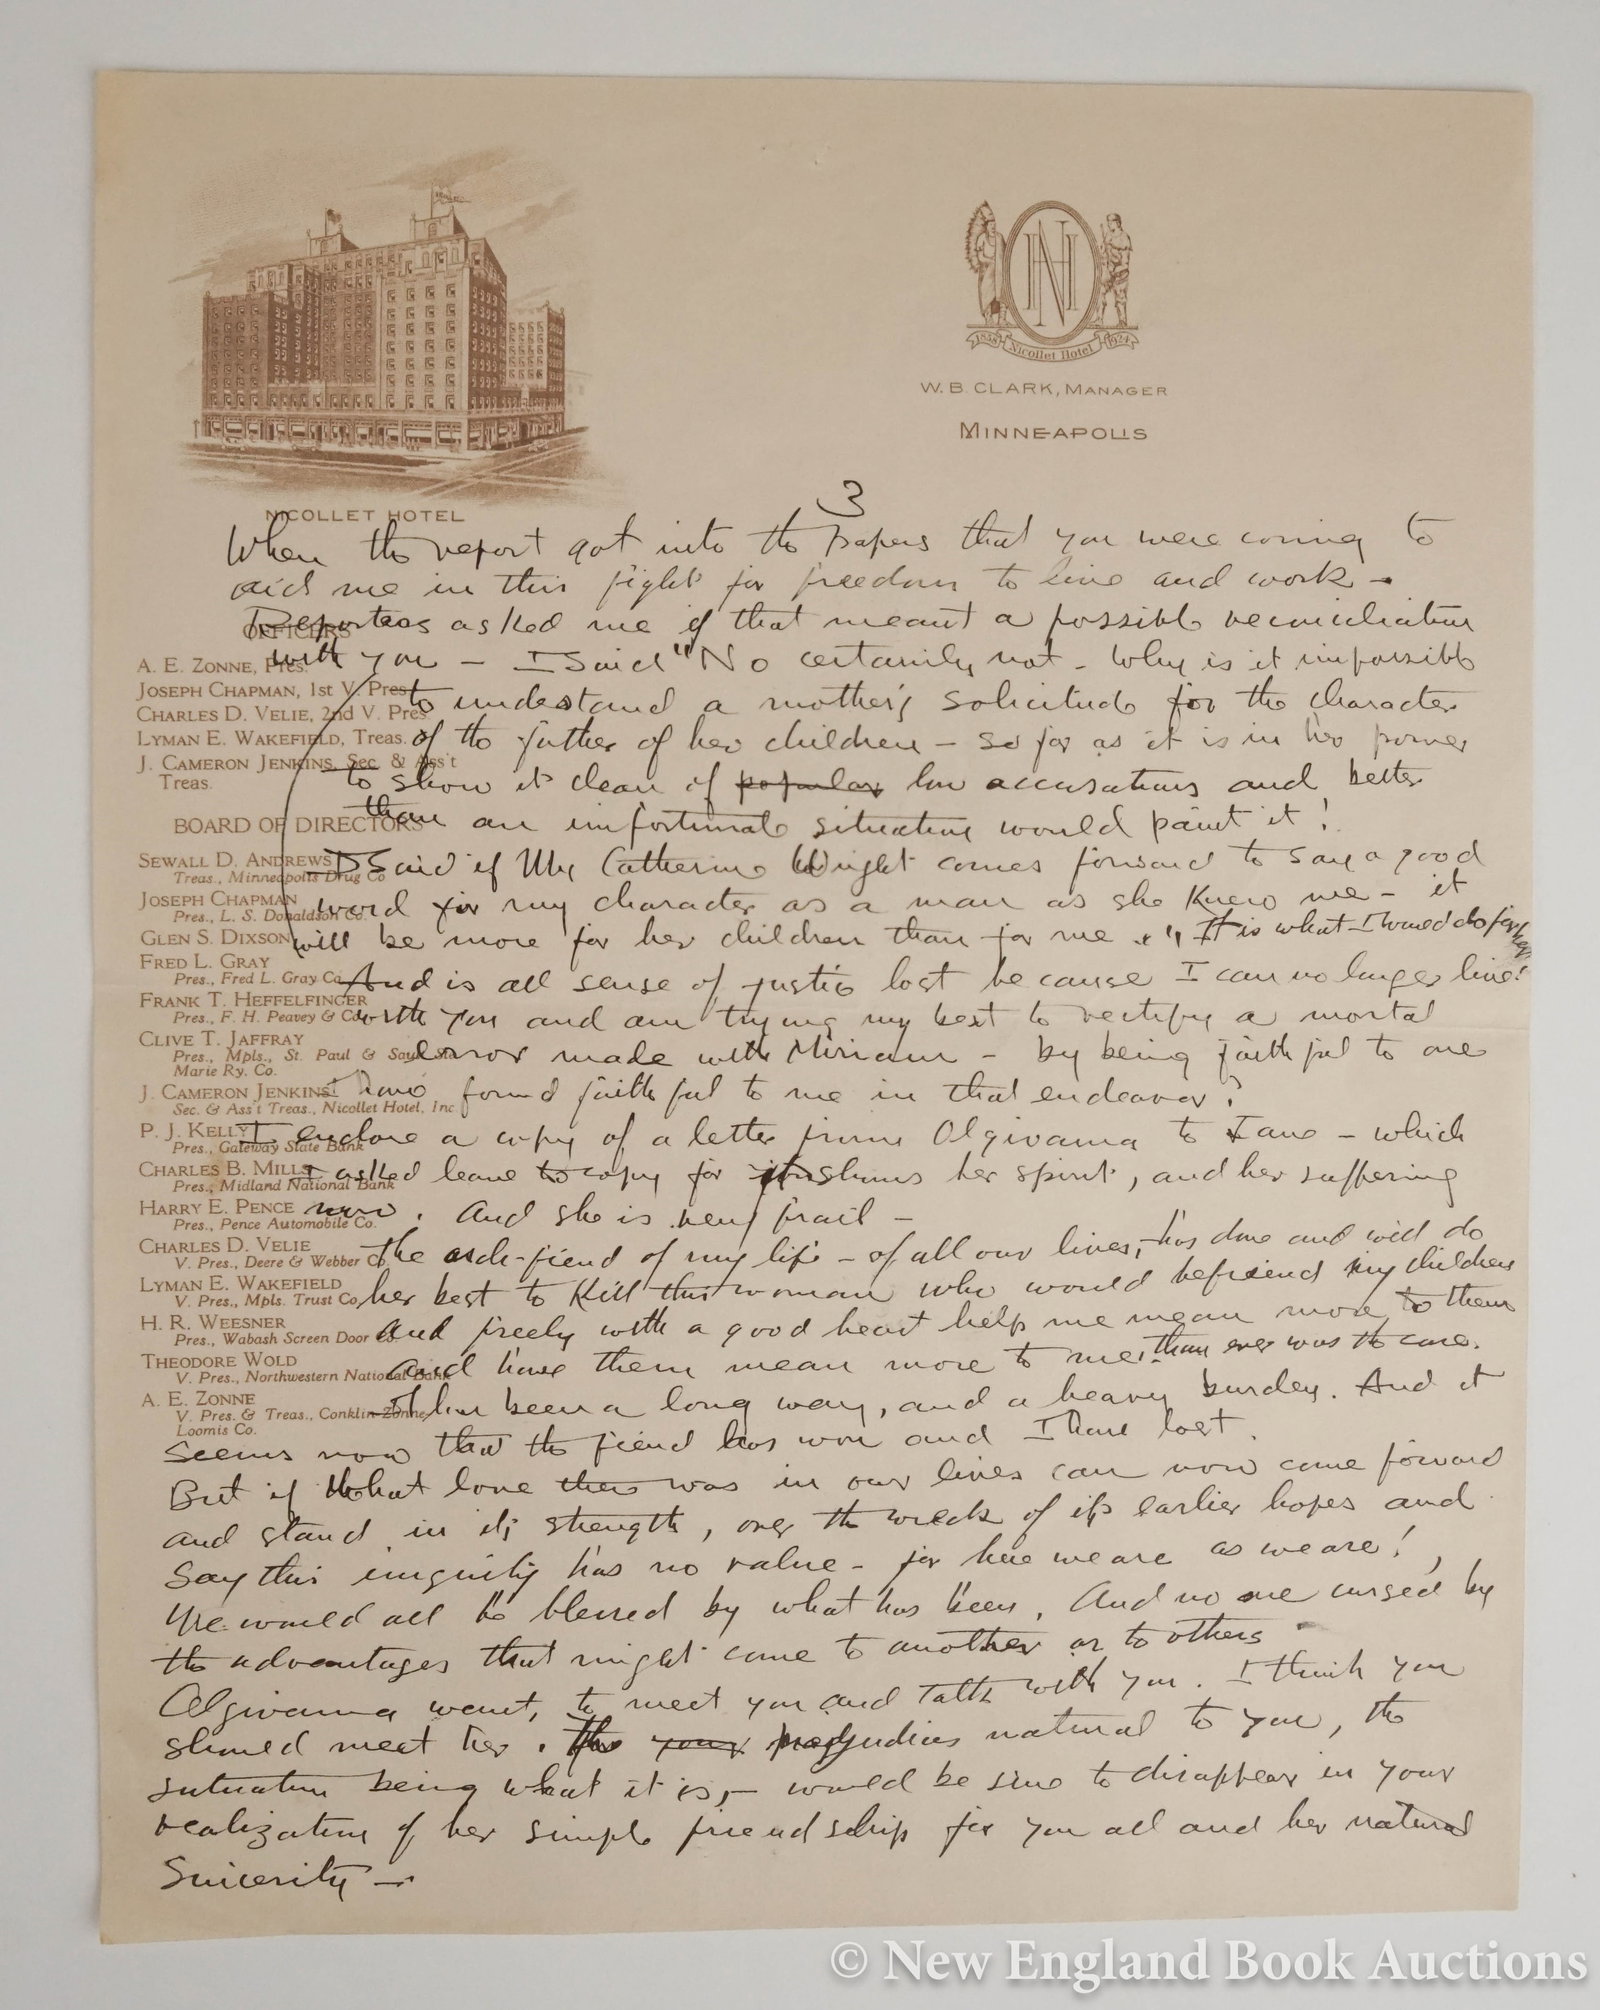 1858 Nicollet Hotel 1924
W. B. CLARK, MANAGER
MINNEAPOLIS
NICOLLET HOTEL
OFFICERS
A. E. ZONNE, Pres.
JOSEPH CHAPMAN, 1st V. Pres.
CHARLES D. VELIE, 2nd V. Pres.
LYMAN E. WAKEFIELD, Treas.
J. CAMERON JENKINS, Sec. & Ass't
Treas.
BOARD OF DIRECTORS
SEWALL D. ANDREWS
Treas., Minneapolis Drug Co
JOSEPH CHAPMAN
Pres., L. S. Donaldson Co.
GLEN S. DIXSON
FRED L. GRAY
Pres., Fred L. Gray Co.
FRANK T. HEFFELFINGER
Pres., F. H. Peavey & Co.
CLIVE T. JAFFRAY
Pres., Mpls., St. Paul & Sault Ste.
Marie Ry. Co.
J. CAMERON JENKINS
Sec. & Ass't Treas., Nicollet Hotel, Inc
P. J. KELLY
Pres., Gateway State Bank
CHARLES B. MILLS
Pres., Midland National Bank
HARRY E. PENCE
Pres., Pence Automobile Co.
CHARLES D. VELIE
V. Pres., Deere & Webber Co.
LYMAN E. WAKEFIELD
V. Pres., Mpls. Trust Co.
H. R. WEESNER
Pres., Wabash Screen Door Co
THEODORE WOLD
V. Pres., Northwestern National Bank
A. E. ZONNE
V. Pres. & Treas., Conklin-Zonne-
Loomis Co.
3
When the report got into the papers that you were coming to
aid me in this fight for freedom to live and work –
Reporters asked me if that meant a possible reconciliation
with you – I said "No certainly not – Why is it impossible
to understand a mother's solicitude for the character
of the father of her children – so far as it is in her power
to show it clean of popular low accusations and better
than an unfortunate situation would paint it!
I said if Mrs Catherine Wright comes forward to say a good
word for my character as a man as she knew me – it
will be more for her children than for me." It is what I would do for her
And is all sense of justice lost because I can no longer live
with you and am trying my best to rectify a mortal
error made with Miriam – by being faithful to one
I have found faithful to me in that endeavor?
I enclose a copy of a letter from Olgivanna to Jane – which
I asked leave to copy for it shows her spirit, and her suffering
now. And she is very frail –
The arch-fiend of my life – of all our lives, – has done and will do
her best to kill this woman who would befriend my children
and freely with a good heart help me mean more to them
and have them mean more to me than ever was the case.
It has been a long way, and a heavy burden. And it
seems now that the fiend has won and I have lost.
But if what love there was in our lives can now come forward
and stand in its strength, over the wreck of its earlier hopes and
say this iniquity has no value – for here we are as we are!,
We would all be blessed by what has been. And no one cursed by
the advantages that might come to another or to others
Olgivanna wants to meet you and talk with you. I think you
should meet her. The your prejudices natural to you, the
situation being what it is, – would be sure to disappear in your
realization of her simple friendship for you all and her natural
Sincerity –
© New England Book Auctions